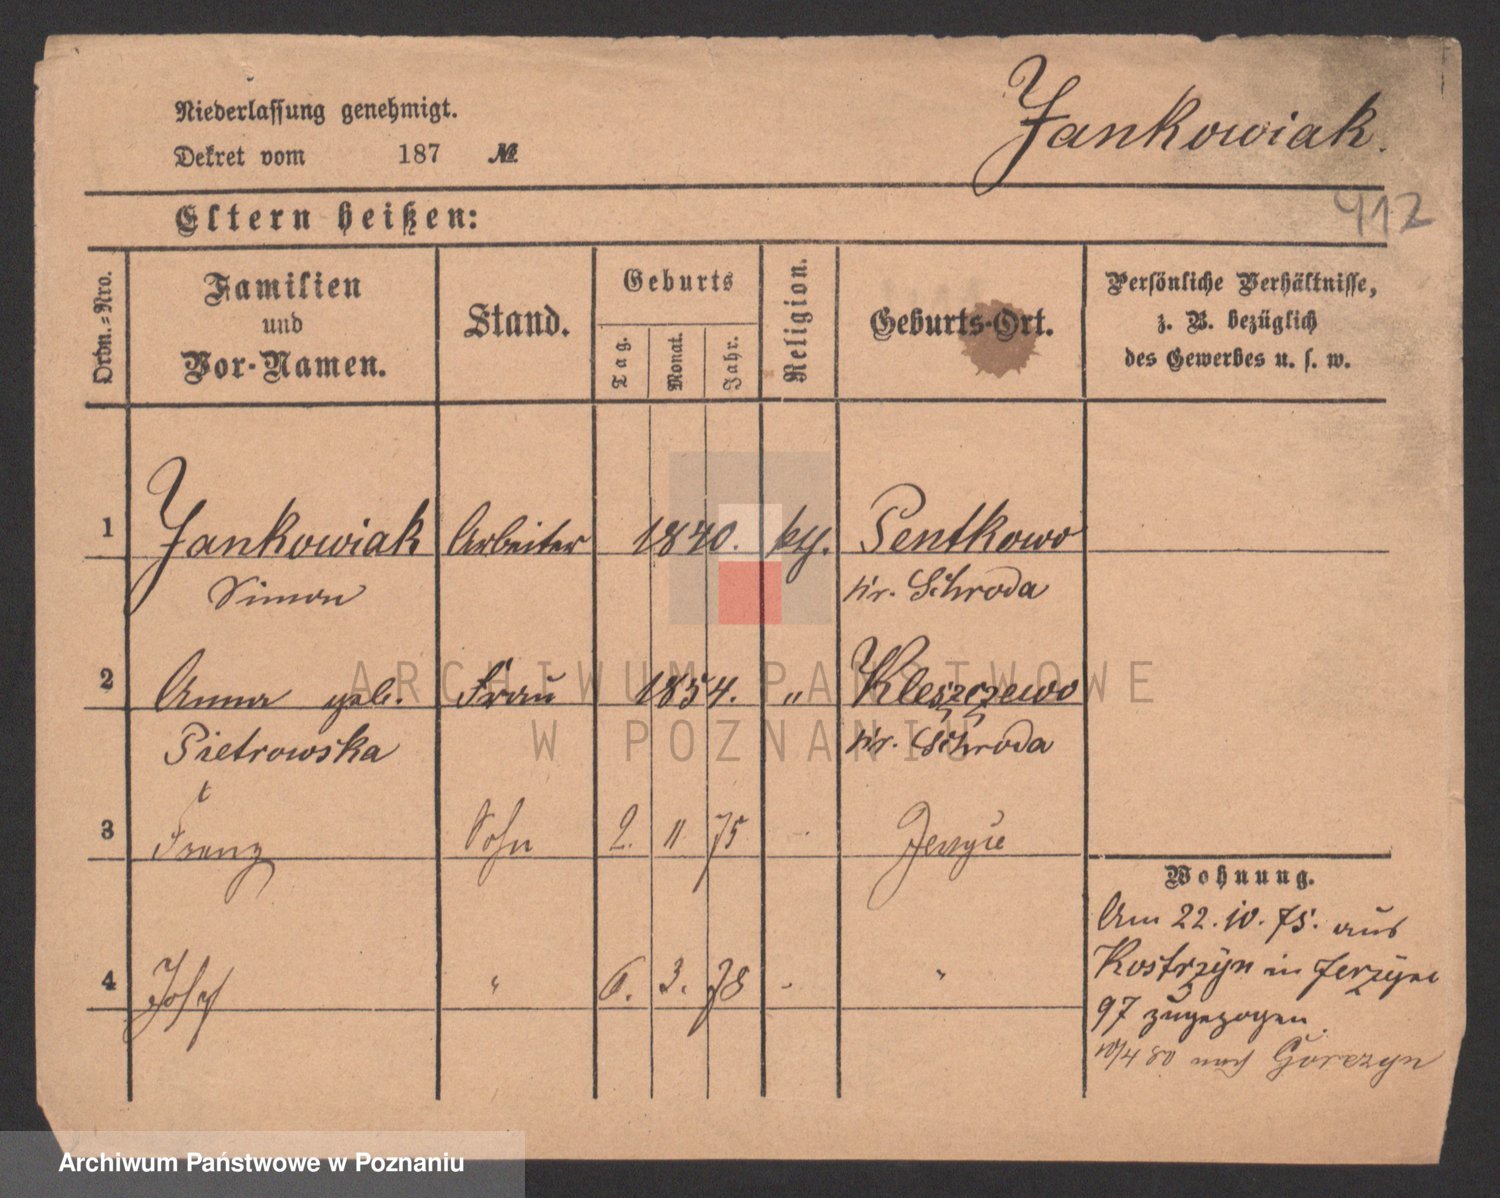 Niederlassung genehmigt.
Dekret vom 187 №
Jankowiak.
412
Eltern heißen:
Ordn.-Nro.
Familien
und
Vor-Namen.
Stand.
Geburts
Tag.
Monat.
Jahr.
Religion.
Geburts-Ort.
Persönliche Verhältnisse,
z. B. bezüglich
des Gewerbes u. s. w.
1 Jankowiak Arbeiter 1840. Pentkowo
Simon Kr. Schroda
2 Anna geb. Frau 1854. " Kleszczewo
Pietrowska Kr. Schroda
†
3 Franz Sohn 2. 11 75
4 Josef " 6. 3. 78 "
Wohnung.
Am 22.10.75. aus
Kostrzyn in Jerzyce
97 zugezogen.
10/4 80 nach Gorczyn
ARCHIWUM PAŃSTWOWE
W POZNANIU
Archiwum Państwowe w Poznaniu